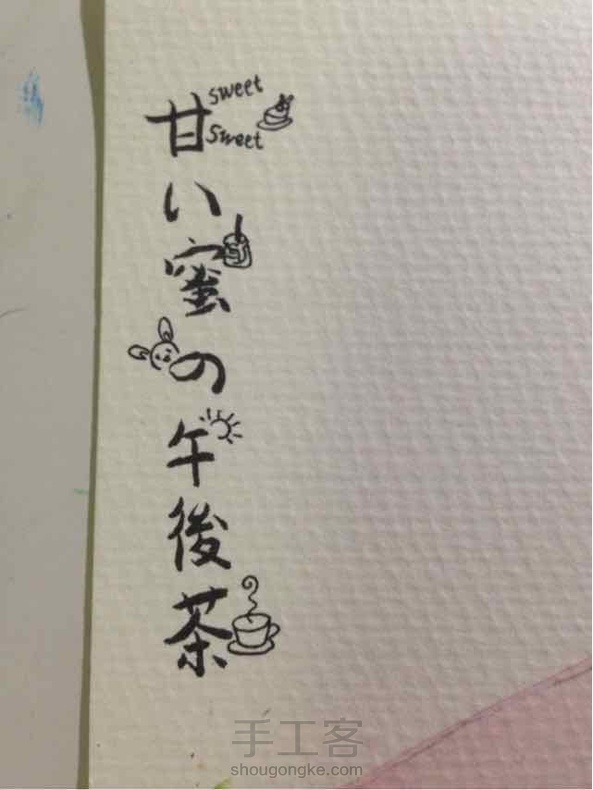 sweet
sweet
甘い蜜の午後茶
手工客
shougongke.com